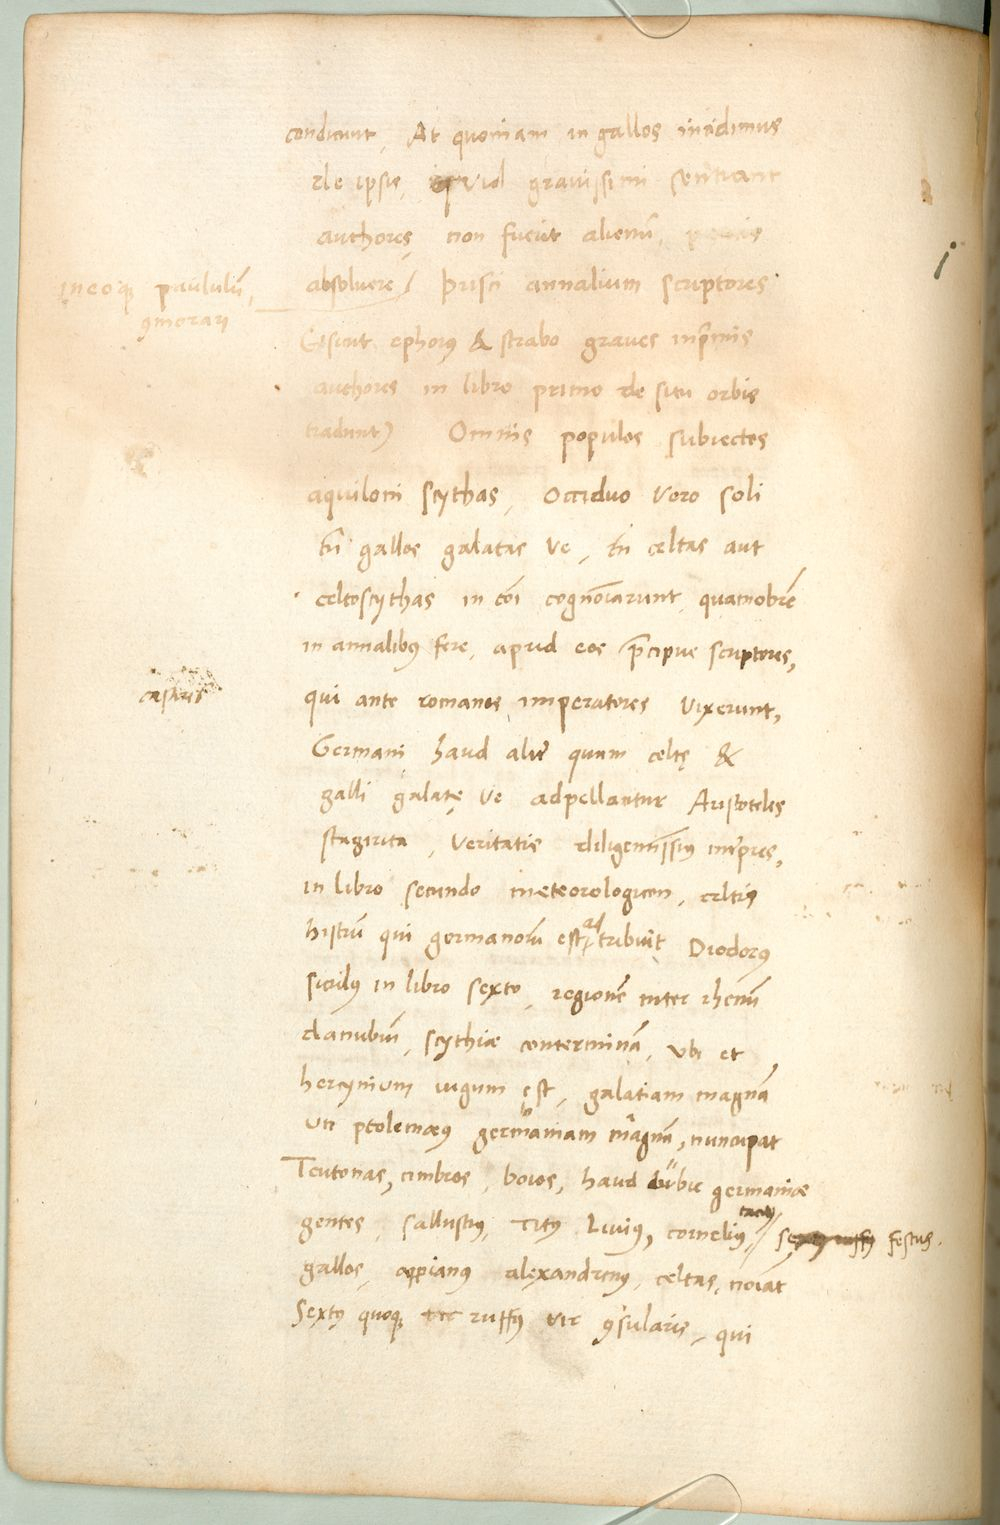 condiunt, At quoniam in gallos incidimus
de ipsis, quid gravissimi sentiant
authores, non fuerit alienũ, paucis
absolvere / Prisci annalium scriptores
ineoq; paululũ,
ꝯmorari
ephorꝯ & strabo graves inp̃mis
authores in libro primo de situ orbis
tradunt) Omnis populos subiectos
aquiloni scythas, Occiduo vero soli
tũ gallos galatas ve, tũ celtas aut
celtoscythas in cõi cognoĩarunt, quamobrẽ
in annalibꝯ fere, apud eos p̃cipue scriptores,
qui ante romanos imperatores vixerunt,
caspares
Germani haud aliẽ quam celtę &
galli galatę ve adpellantur Aristoteles
stagirita, veritatis diligentissimꝯ inṫpres,
in libro secundo meteorologicon, celtis
histrũ qui germanorũ est, adtribuit, Diodorꝯ
sicculꝯ in libro sexto, regionẽ inter rhenũ
danubiũ, scythiæ conterminã, ubi et
hercynium iugum est, galatiam magnã
uti ptolemæꝯ germaniam magnã, nuncupat
Teutonas, cimbros, boios, haud dubie germaniæ
gentes, sallustiꝯ, Titꝯ Liviꝯ, corneliꝯ, / festus.
gallos, appianꝯ alexandrinꝯ, celtas, noĩat
Sextꝯ quoq; ruffꝯ vir ꝯsularis, qui